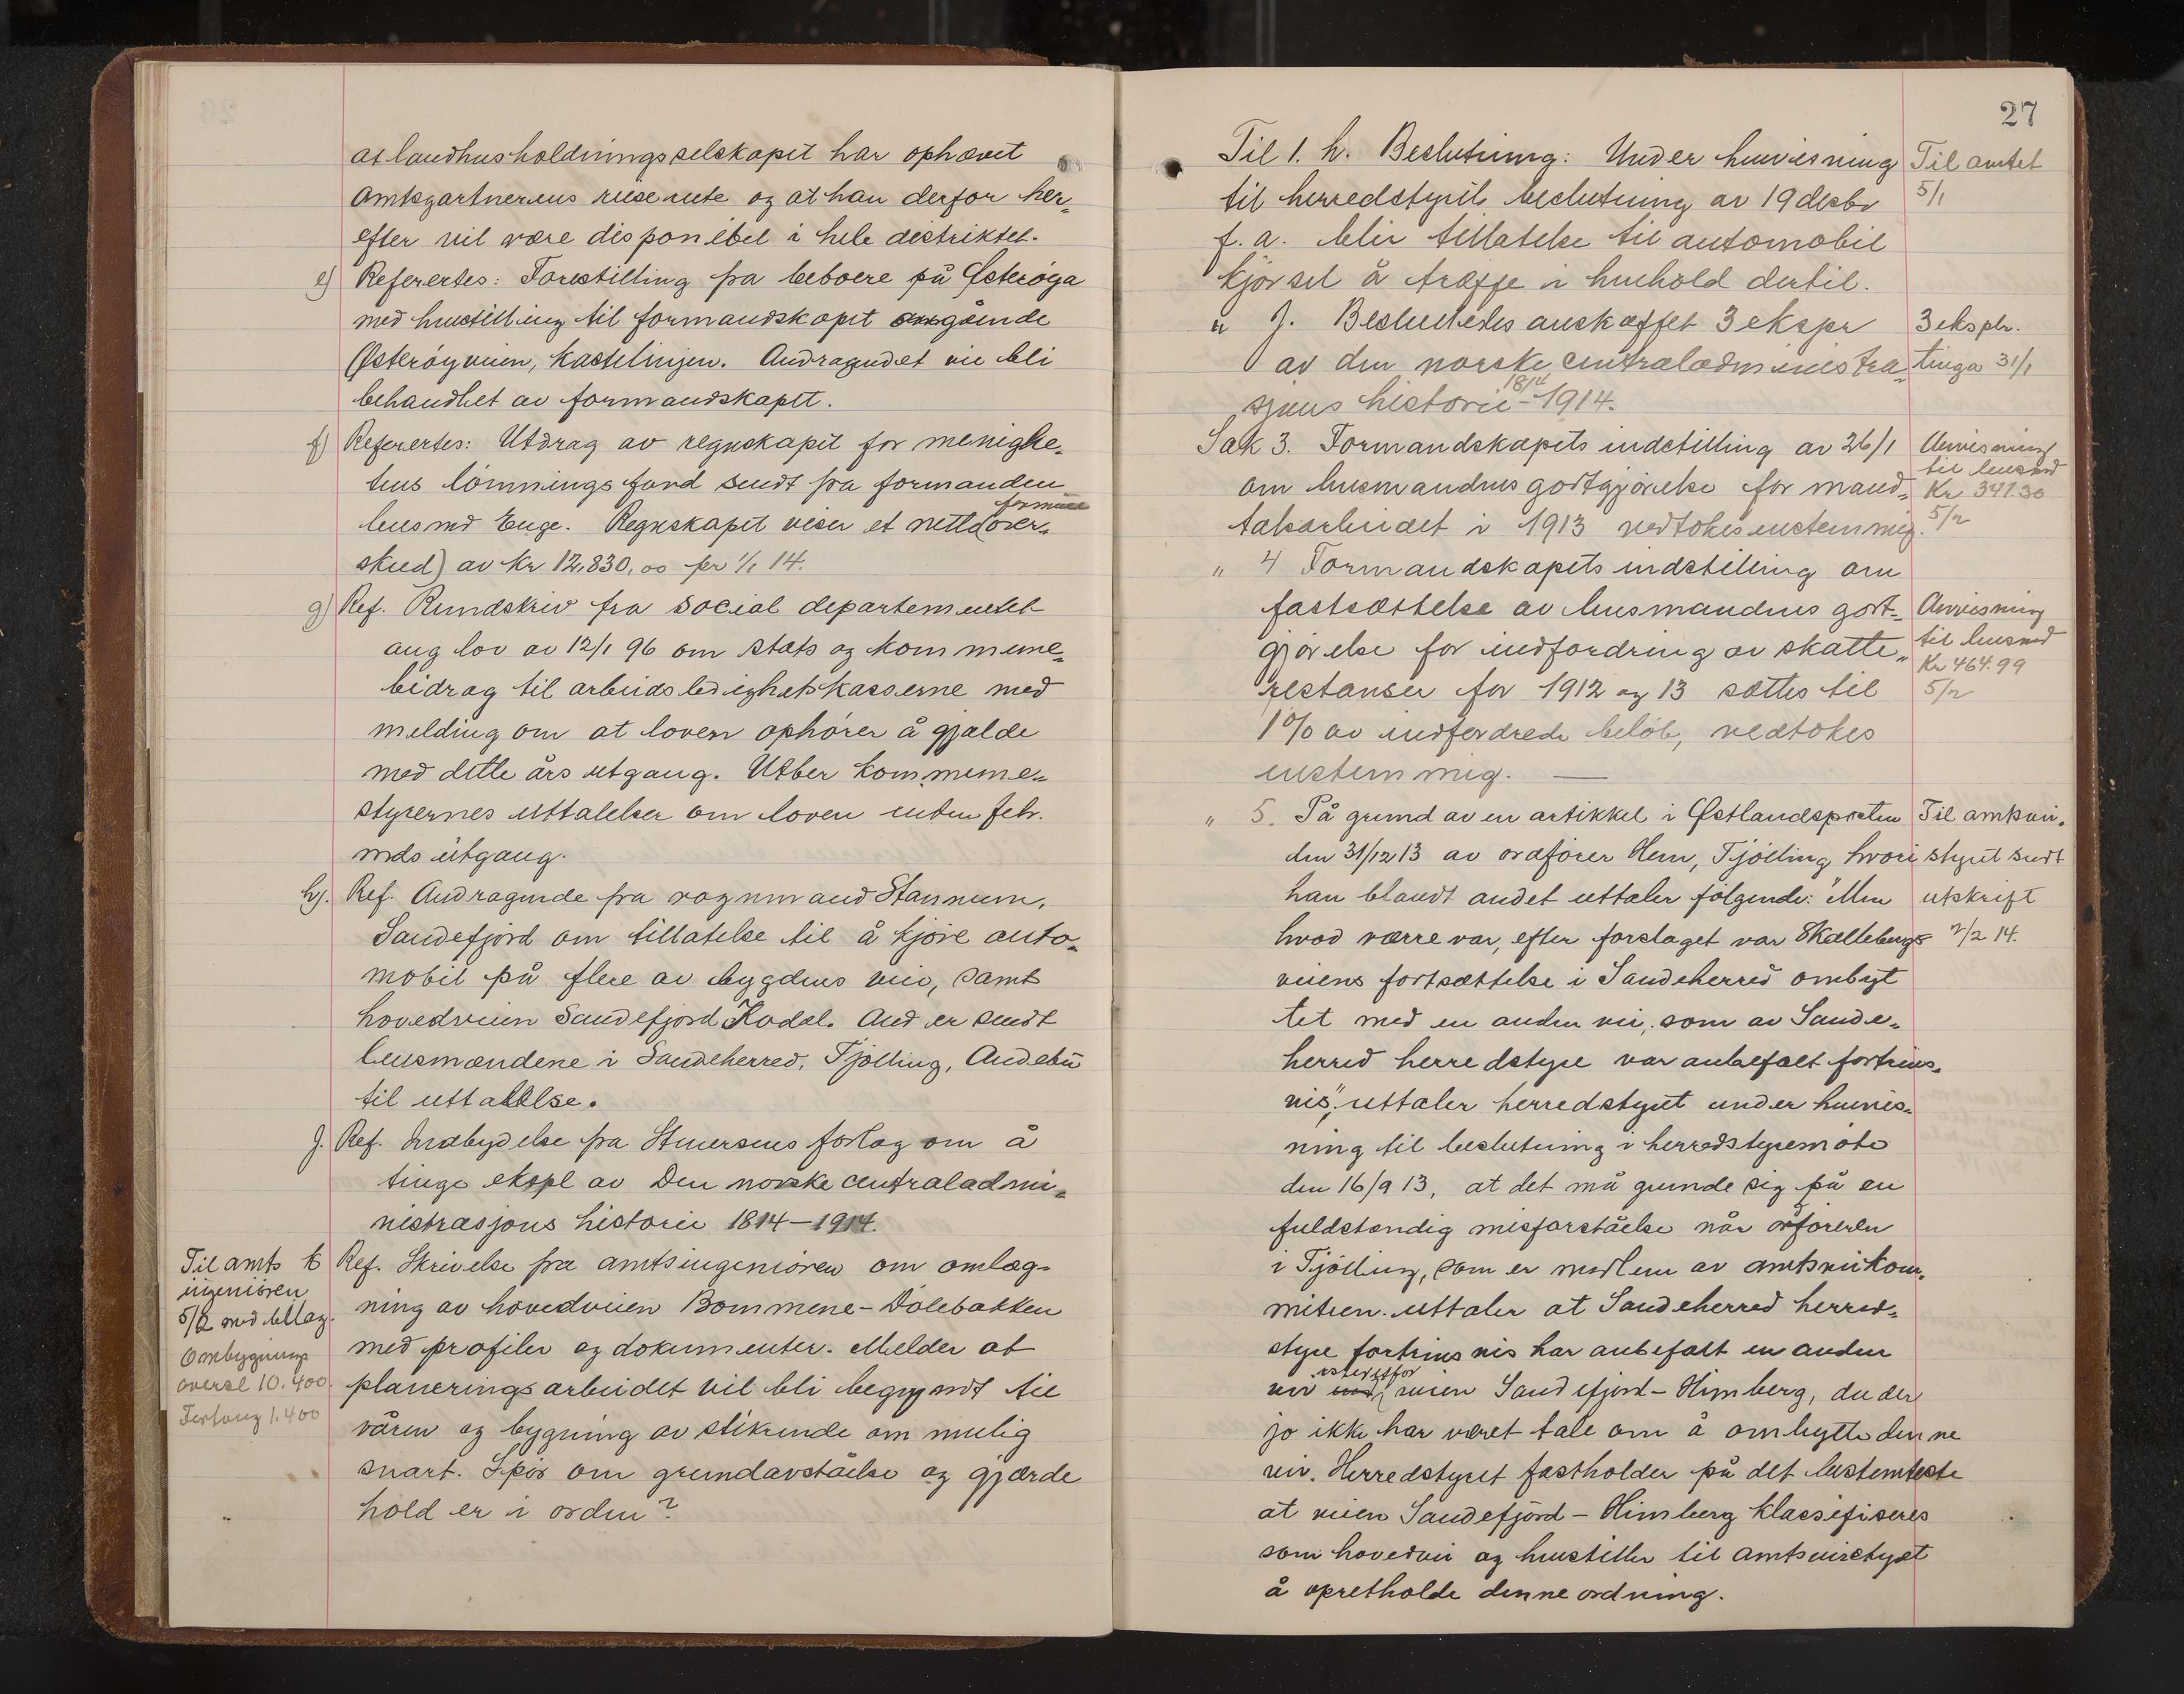 at landhusholdningsselskapet har ophævet
amtsgartnerens reiserute og at han derfor her„
efter vil være disponibel i hele distriktet.
e) Referertes: Forestilling fra beboere på Østerøya
med henstilling til formandskapet angående
Østerøyveien, Kastelinjen. Andragendet vil bli
behandlet av formandskapet.
f) Referertes: Utdrag av regnskapet for menighe„
tens lønningsfond sendt fra formanden
formue
lensmd Enge. Regnskapet viser et netto (over„
skud) av Kr 12,830,00 pr 1/1 14.
g) Ref. Rundskriv fra Social departementet
ang lov av 12/1 96 om stats og kommune„
bidrag til arbeidsledighetskasserne med
melding om at loven ophører å gjælde
med dette års utgang. Utber kommune„
styrernes uttalelser om loven inden febr.
mds utgang.
h). Ref. Andragende fra vognmand Stannum,
Sandefjord om tillatelse til å kjøre auto„
mobil på flere av bygdens veie, samt
hovedveien Sandefjord Kodal. And er sendt
lensmændene i Sandeherred, Tjølling, Andebu
til uttalelse.
J. Ref. Indbydelse fra Stenersens forlag om å
tinge ekspl av Den norske centraladmi„
nistrasjons historie 1814–1914.
Til amts
ingeniøren
5/2 med bilag.
Ombygning
overs 10.400.
1.400
k Ref. Skrivelse fra amtsingeniøren om omlæg-
ning av hovedveien Bommene–Dølebakken
med profiler og dokumenter. Melder at
planeringsarbeidet vil bli begynt til
våren og bygning av stikrende om mulig
snart. Spør om grundavståelse og gjærde
hold er i orden?
27
Til 1. h. Beslutning: Under henvisning
til herredstyrets beslutning av 19 desbr
f. a. blir tillatelse til automobil
kjørsel å træffe i henhold dertil.
Til amtet
5/1
„ J. Besluttedes anskaffet 3 ekspr
av den norske centraladministra„
1814
sjons historie – 1914.
3 ekspl.
tinga 31/1
Sak 3. Formandskapets indstilling av 26/1
om lensmandens godtgjørelse for mand„
talsarbeidet i 1913 vedtokes enstemmig.
Anvisning
til lensmd
Kr 341.30
5/2
„ 4 Formandskapets indstilling om
fastsættelse av lensmandens godt„
gjørelse for indfordring av skatte„
restanser for 1912 og 13 sættes til
1% av indfordrede beløb, vedtokes
enstemmig. —
Anvisning
til lensmd
Kr 464.99
5/2
„ 5. På grund av en artikkel i Østlandsposten
den 31/12 13 av ordfører Hem, Tjølling, hvori
han blandt andet uttaler følgende: "Men
hvad værre var, efter forslaget var Skallebergs
veiens fortsættelse i Sandeherred ombyt
tet med en anden vei, som av Sande„
herred herredstyre var anbefalt fortrins„
vis", uttaler herredstyret under henvis„
ning til beslutning i herredstyremøte
den 16/9 13, at det må grunde sig på en
fuldstændig misforståelse når ordføreren
i Tjølling, som er medlem av amtsveikom„
miteen uttaler at Sandeherred herred„
styre fortrinsvis har anbefalt en anden
istedetfor
vei veien Sandefjord – Himberg, da der
jo ikke har været tale om å ombytte denne
vei. Herredstyret fastholder på det bestemteste
at veien Sandefjord – Himberg klassifiseres
som hovedvei og henstiller til amtsveistyret
å opretholde denne ordning.
Til amtsvei„
styret sendt
utskrift
2/2 14.